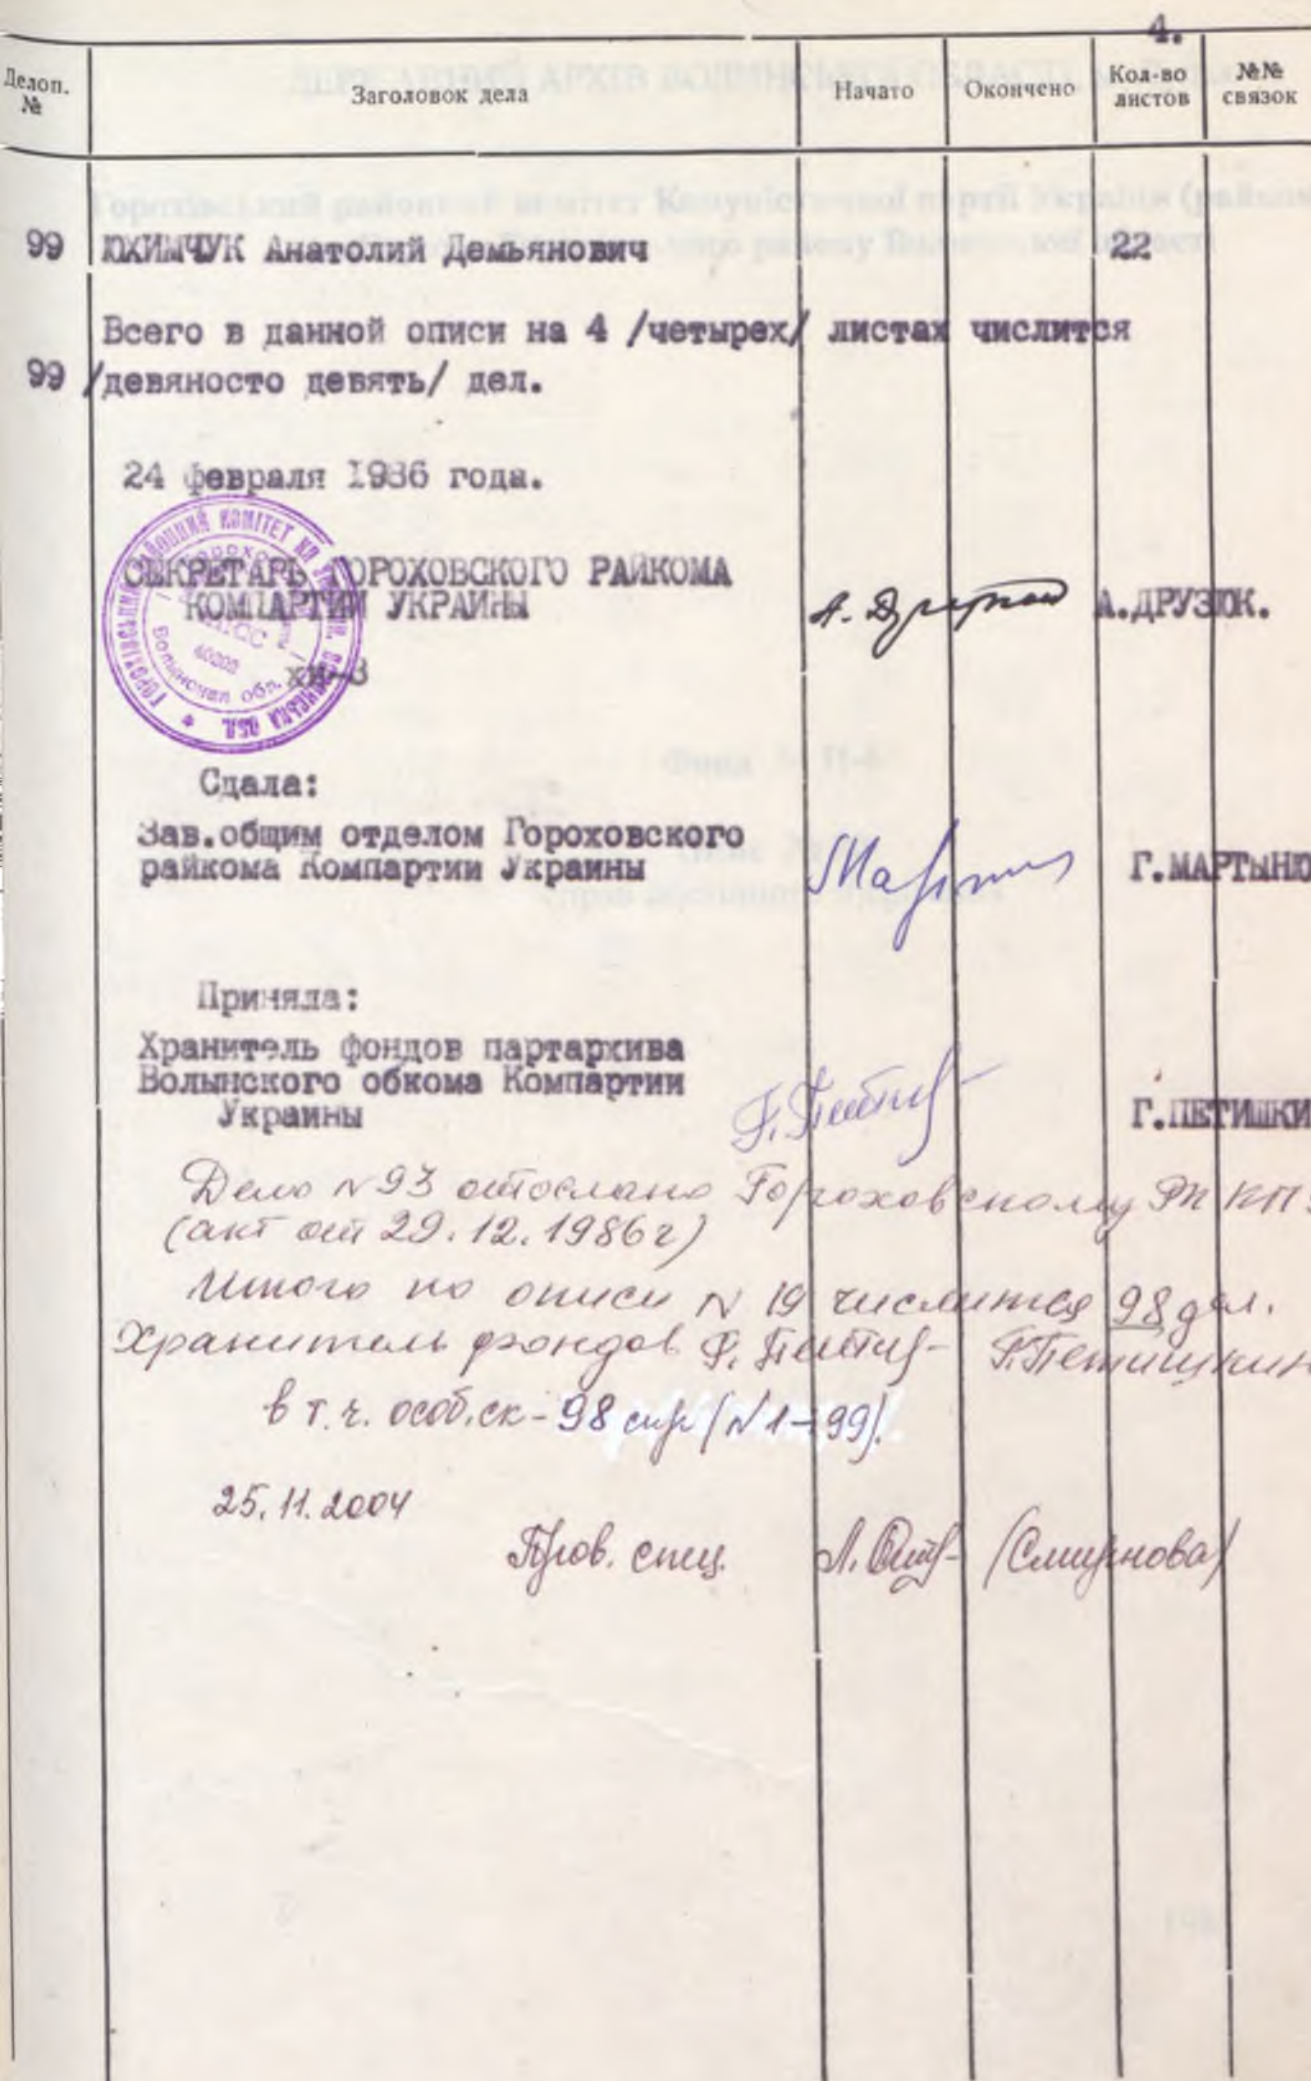 4.
Делоп. № Заголовок дела Начато Окончено Кол-во листов №№ связок
99 ЮХИМЧУК Анатолий Демьянович 22
Всего в данной описи на 4 /четырех/ листах числится
99 /девяносто девять/ дел.
24 февраля 1986 года.
СЕКРЕТАРЬ ГОРОХОВСКОГО РАЙКОМА
КОМПАРТИИ УКРАИНЫ А.ДРУЗЮК.
хн-3
Сдала:
Зав.общим отделом Гороховского
райкома Компартии Украины Г.МАРТЫНЮ
Приняла:
Хранитель фондов партархива
Волынского обкома Компартии
Украины Г.ПЕТИШКИ
Дело N 93 отослано Гороховскому РК КП
(акт от 29.12.1986 г)
Итого по описи N 19 числится 98 дел.
Хранитель фондов Г.Петишкин
в т.ч. особ.ск - 98 спр (N 1-99).
25.11.2004
Пров. спец. (Смирнова)